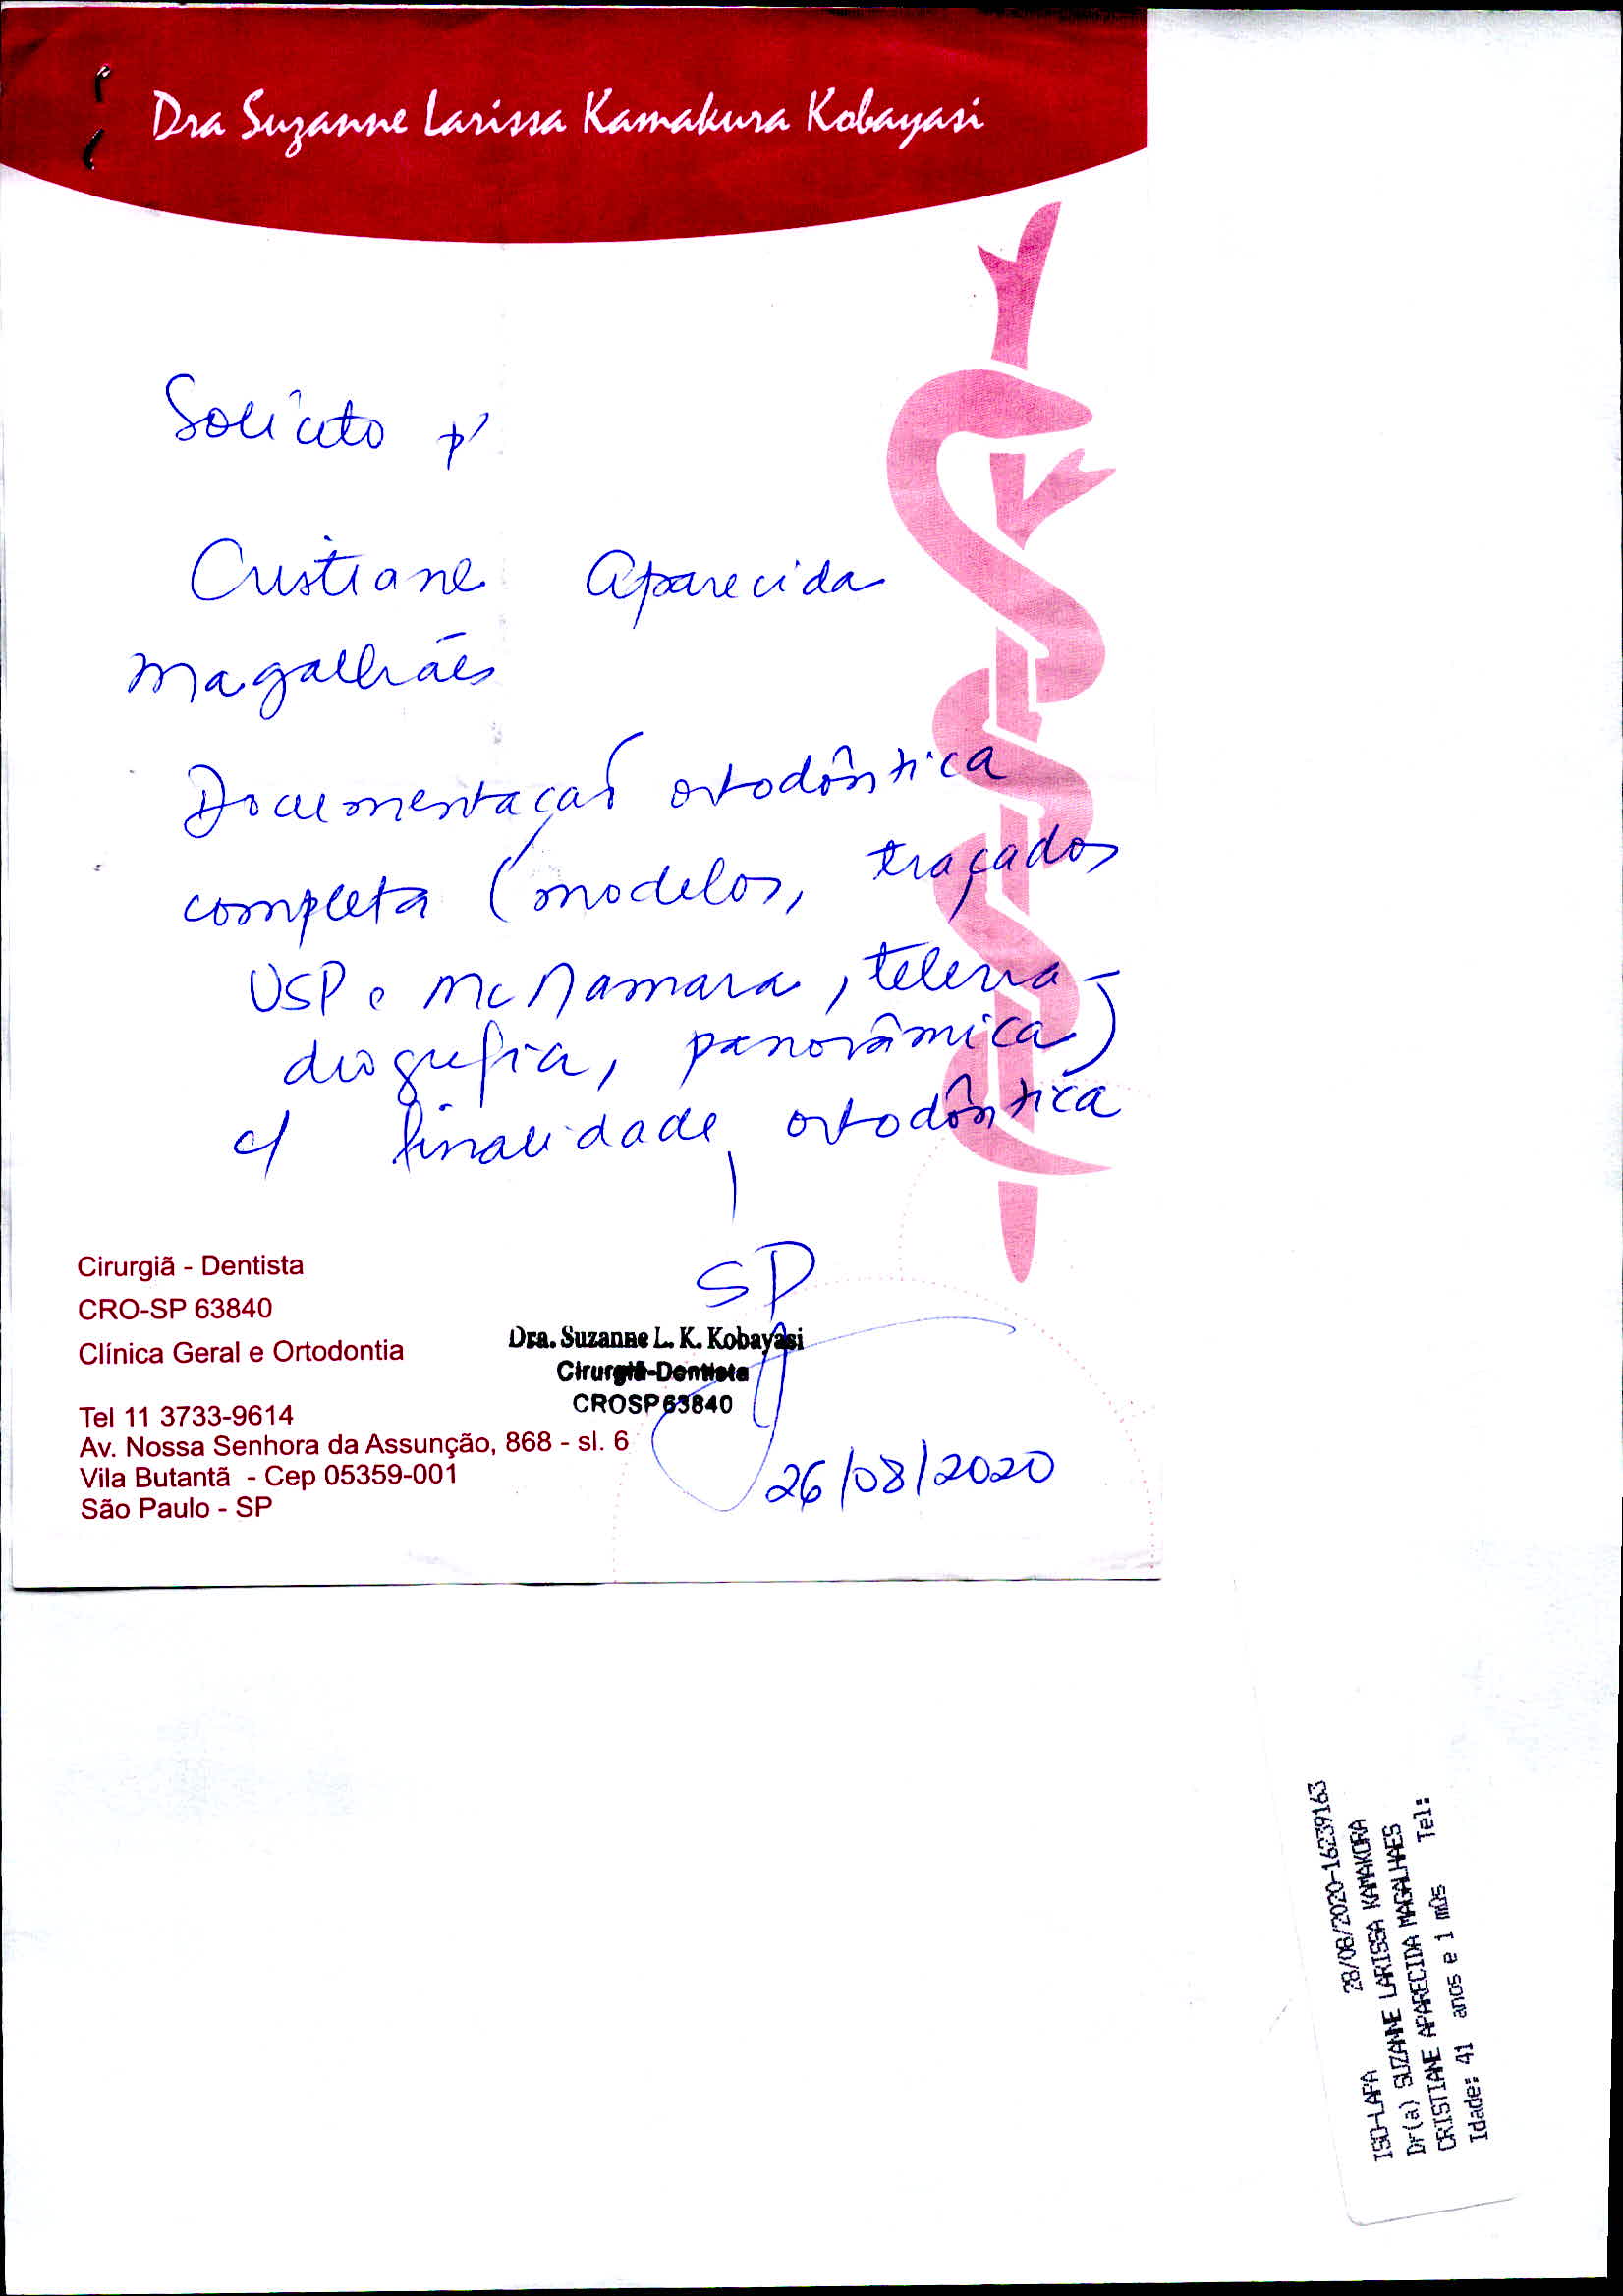 Dra Suzanne Larissa Kamakura Kobayasi
Solicito p/
Cristiane Aparecida
Magalhães
Documentação ortodôntica
completa (modelos, traçados
USP e McNamara, telerra-
diografia, panorâmica)
c/ finalidade ortodôntica
Cirurgiã - Dentista
CRO-SP 63840
Clínica Geral e Ortodontia
Tel 11 3733-9614
Av. Nossa Senhora da Assunção, 868 - sl. 6
Vila Butantã - Cep 05359-001
São Paulo - SP
SP
Dra. Suzanne L. K. Kobayasi
Cirurgiã-Dentista
CROSP 63840
26/08/2020
ISO-LAPA 28/08/2020-16239163
Dr(a) SUZANNE LARISSA KAMAKURA
CRISTIANE APARECIDA MAGALHAES
Idade: 41 anos e 1 mÛs Tel: